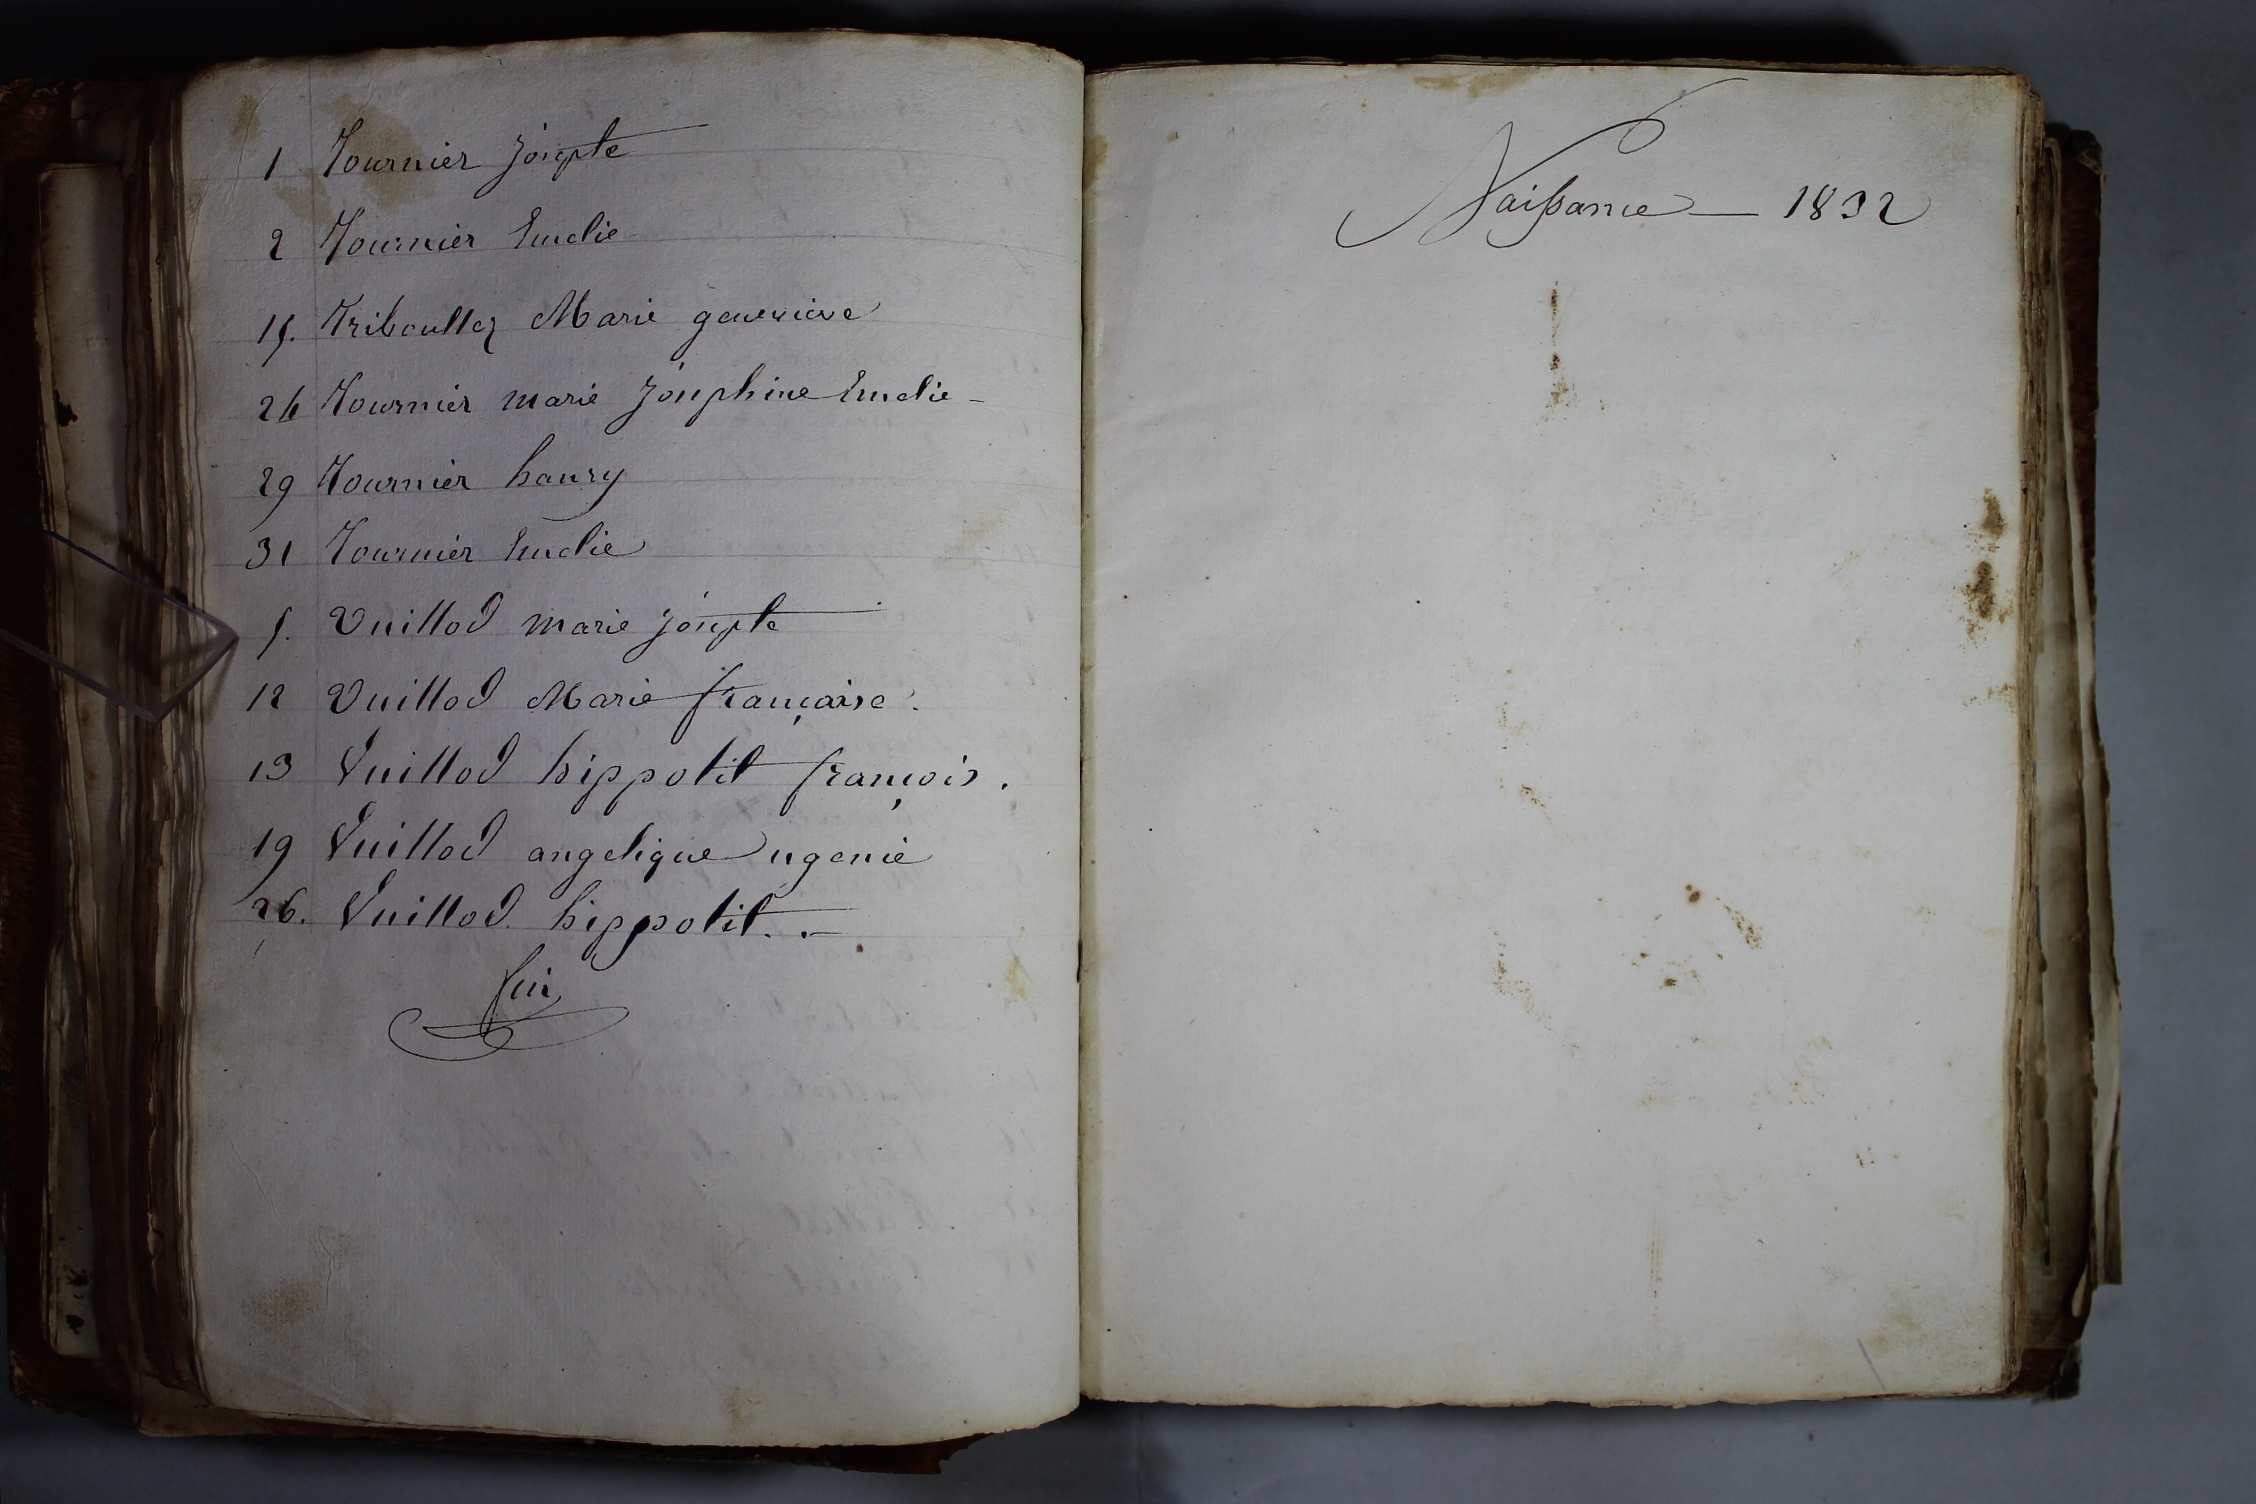 1 Tournier Joseph te
2 Tournier Emelie
15. Triboullez Marie genevieve
24 Tournier marie Joséphine Emelie -
29 Tournier hanry
31 Tournier Emelie
5. Vuillod marie Josephte
12 Vuillod Marie françoise.
13 Vuillod hippolit françois.
19 Vuillod angelique ugenie
26. Vuillod hippolit. . -
fin
Naissance — 1832